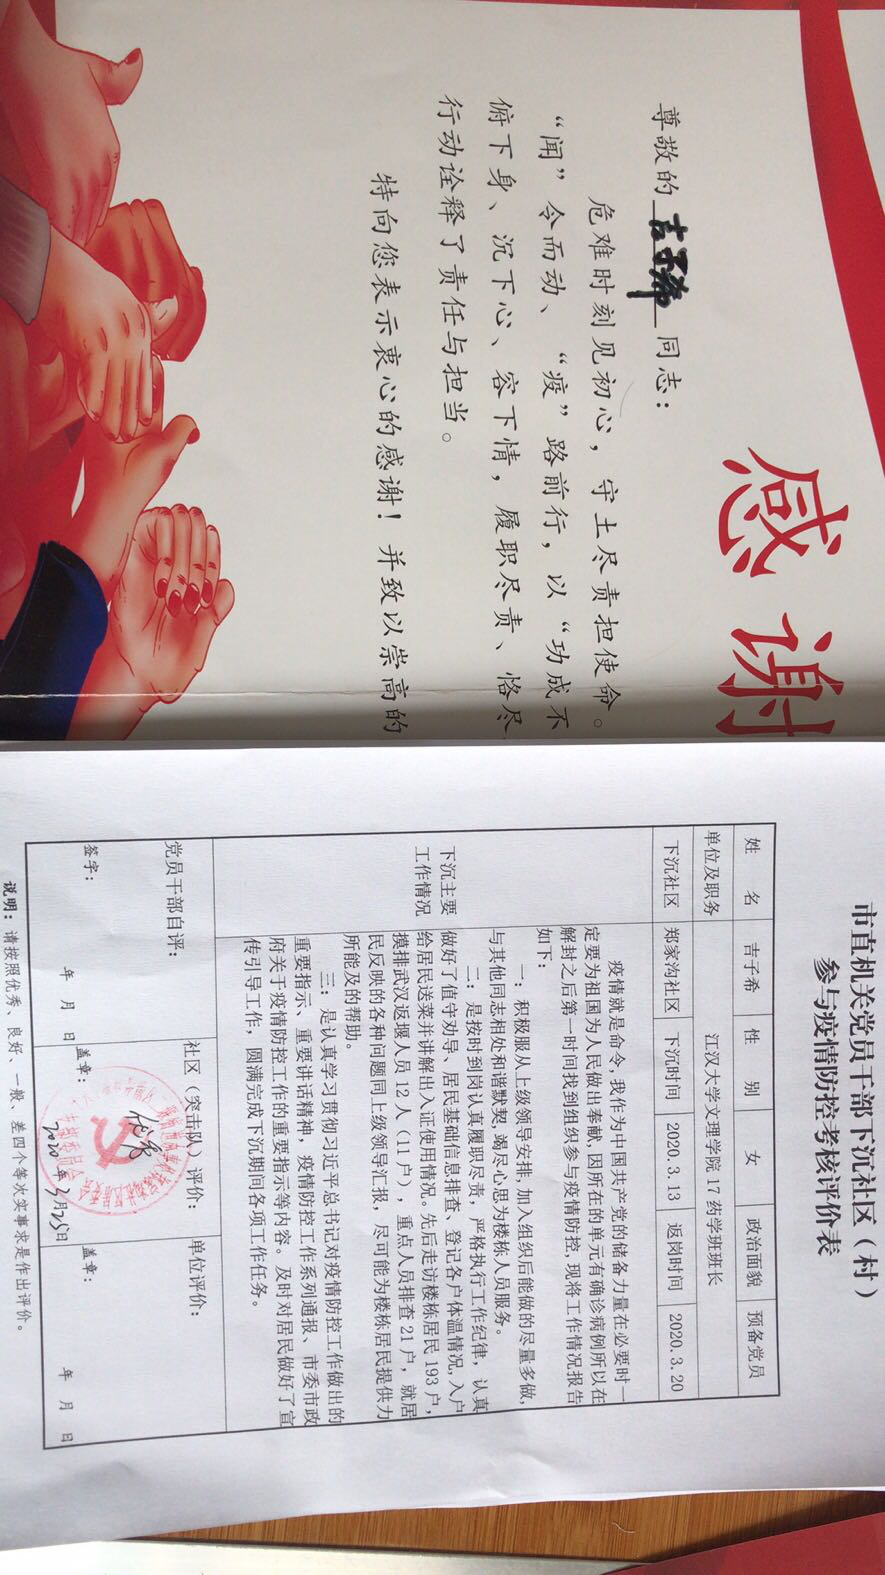 感谢
尊敬的 吉子希 同志：
危难时刻见初心，守土尽责担使命。
“闻”令而动、“疫”路前行，以“功成不
俯下身、沉下心、容下情，履职尽责、恪尽
行动诠释了责任与担当。
特向您表示衷心的感谢！并致以崇高的
市直机关党员干部下沉社区（村）
参与疫情防控考核评价表
姓 名 吉子希 性 别 女 政治面貌 预备党员
单位及职务 江汉大学文理学院17药学班班长
下沉社区 郑家沟社区 下沉时间 2020.3.13 返岗时间 2020.3.20
下沉主要
工作情况
疫情就是命令,我作为中国共产党的储备力量在必要时一
定要为祖国为人民做出奉献,因所在的单元有确诊病例所以在
解封之后第一时间找到组织参与疫情防控,现将工作情况报告
如下:
一：积极服从上级领导安排,加入组织后能做的尽量多做,
与其他同志相处和谐默契,竭尽心思为楼栋人员服务。
二：是按时到岗认真履职尽责，严格执行工作纪律，认真
做好了值守劝导、居民基础信息排查、登记各户体温情况,入户
给居民送菜并讲解出入证使用情况。先后走访楼栋居民193户，
摸排武汉返堰人员12人（11户），重点人员排查21户，就居
民反映的各种问题同上级领导汇报，尽可能为楼栋居民提供力
所能及的帮助。
三：是认真学习贯彻习近平总书记对疫情防控工作做出的
重要指示、重要讲话精神，疫情防控工作系列通报、市委市政
府关于疫情防控工作的重要指示等内容。及时对居民做好了宣
传引导工作，圆满完成下沉期间各项工作任务。
党员干部自评：
签字：
年 月 日
社区（突击队）评价：
优秀
盖章：
2020年3月25日
单位评价：
盖章：
年 月 日
说明：请按照优秀、良好、一般、差四个等次实事求是作出评价。